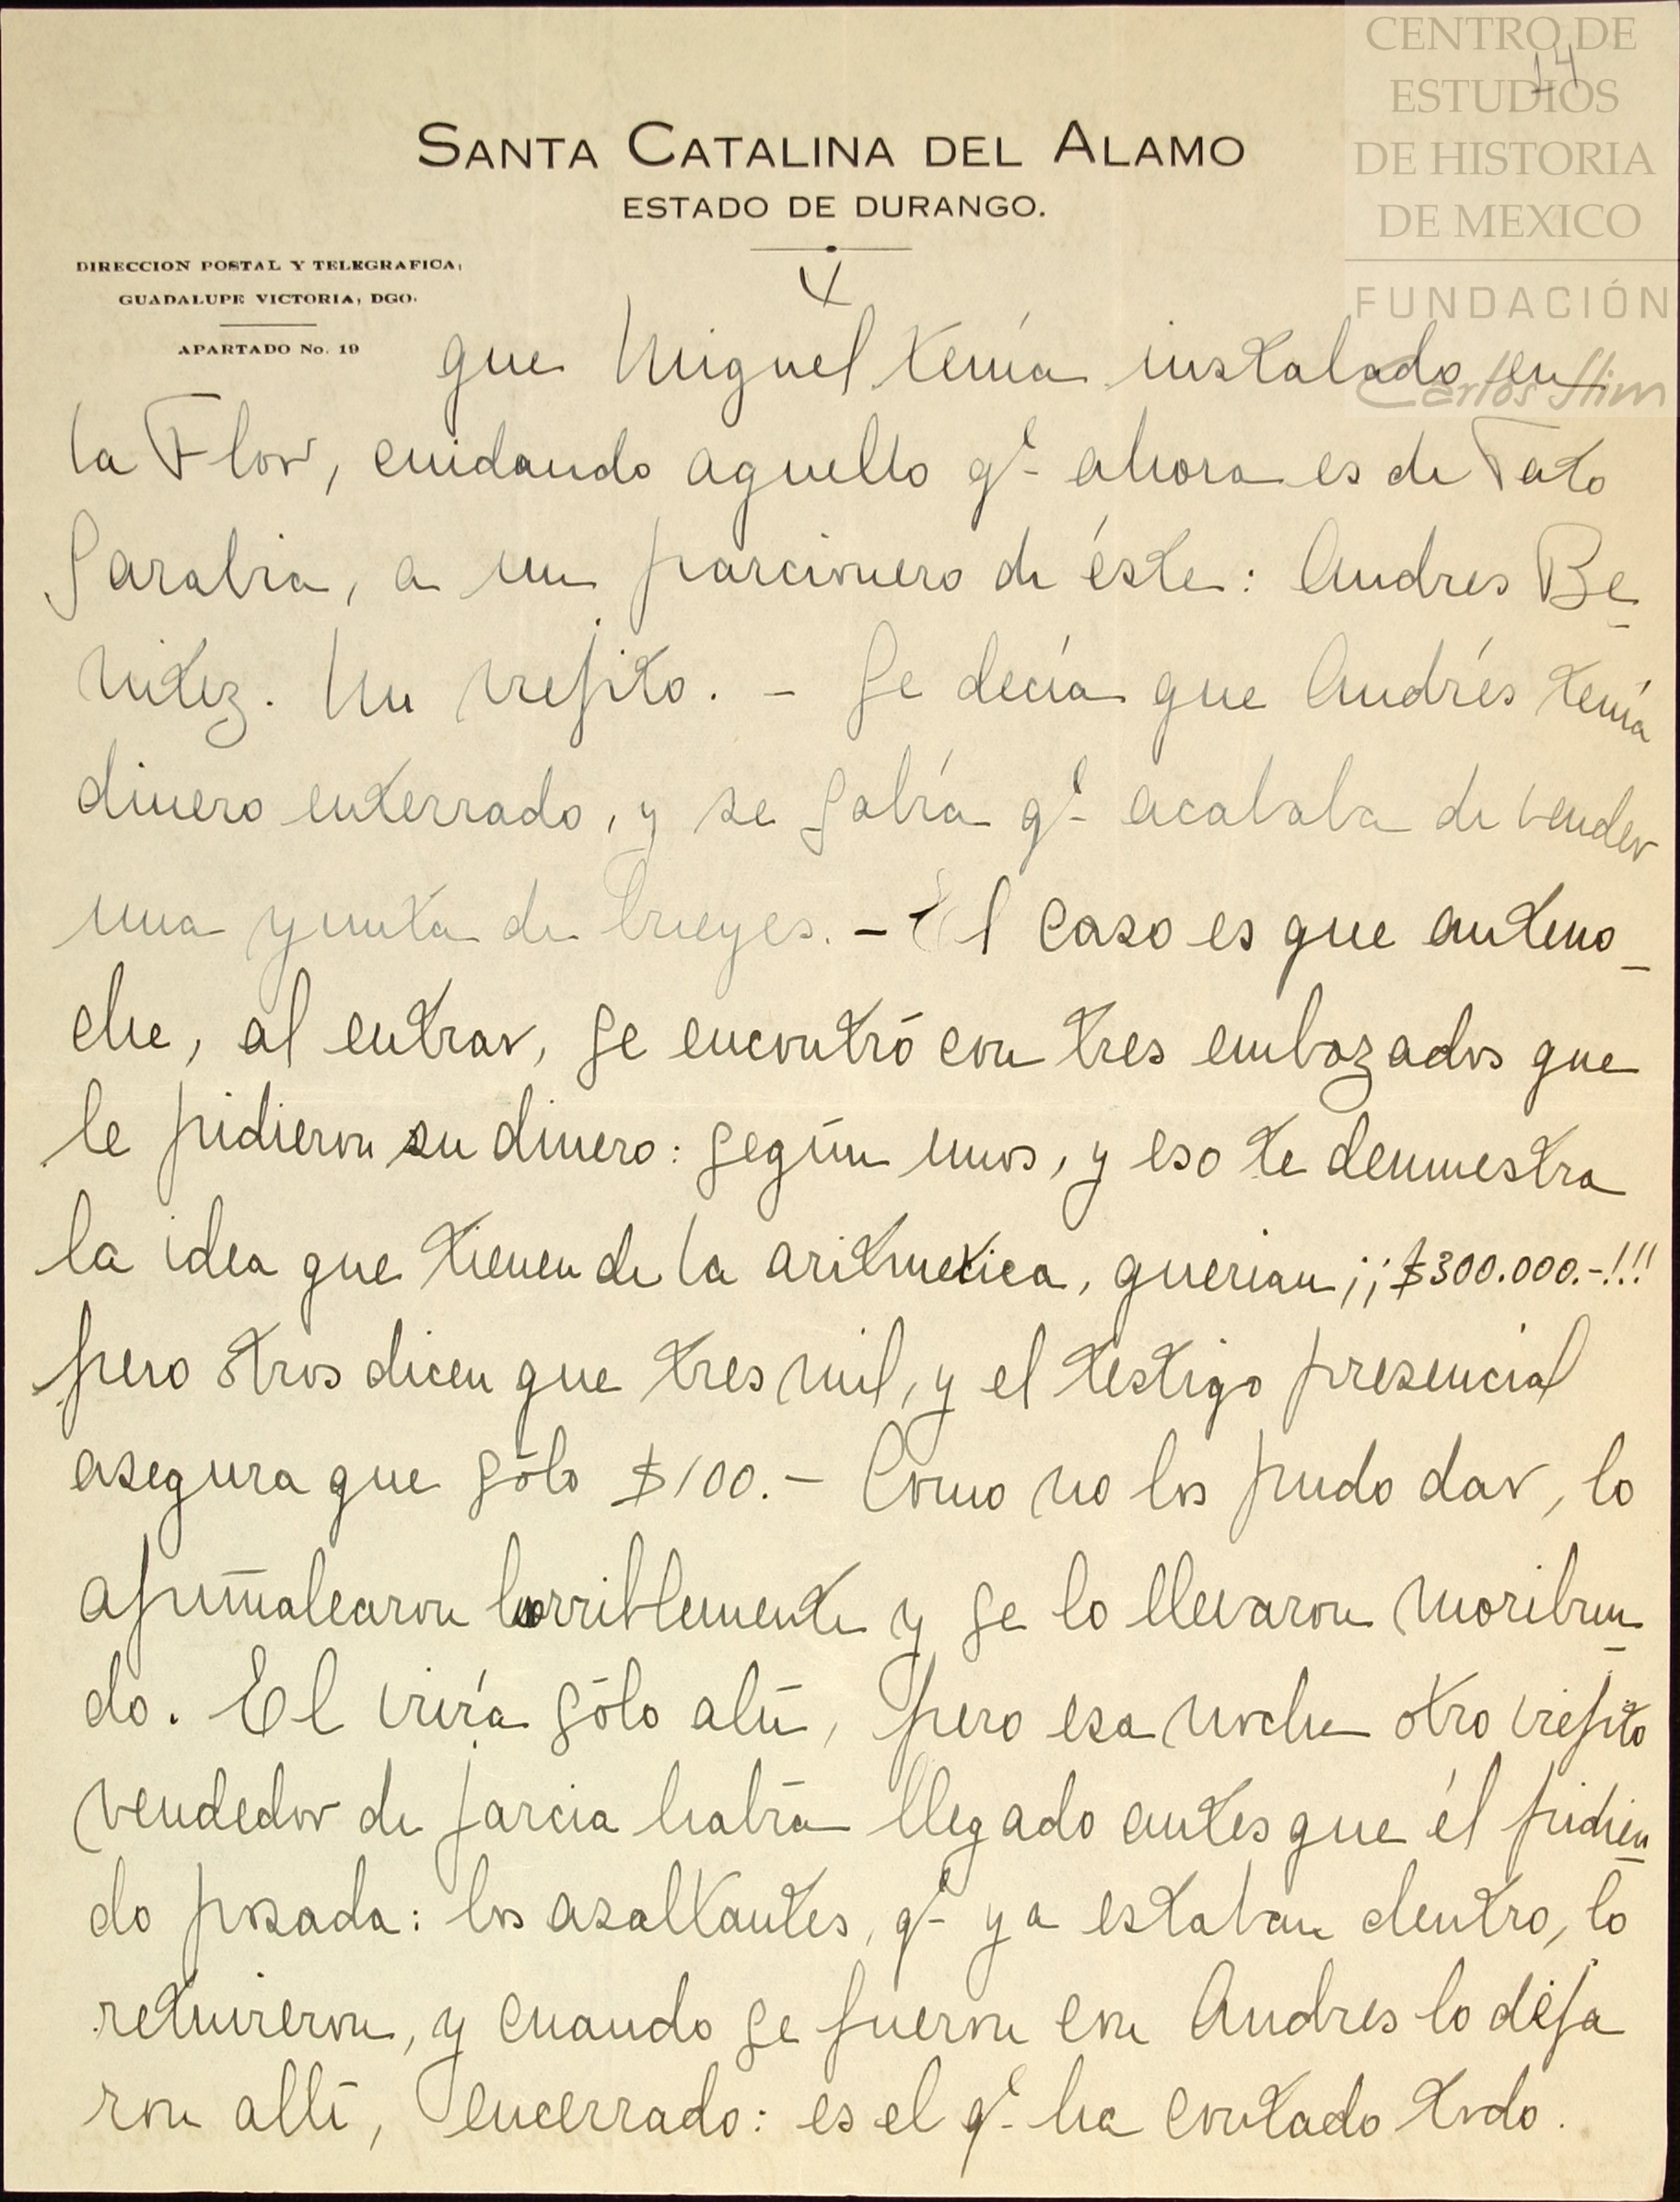 CENTRO DE
ESTUDIOS
DE HISTORIA
DE MEXICO
FUNDACIÓN
Carlos Slim
14
SANTA CATALINA DEL ALAMO
ESTADO DE DURANGO.
DIRECCION POSTAL Y TELEGRAFICA:
GUADALUPE VICTORIA, DGO.
APARTADO No. 19
4
que Miguel tenía instalado en
la Flor, cuidando aquello qe ahora es de Tato
Sarabia, a un parcionero de éste: Andres Be-
nitez. Un viejito. - Se decía que Andrés tenía
dinero enterrado, y se sabía qe acababa de vender
una yunta de bueyes. - El caso es que anteno-
che, al entrar, se encontró con tres embozados que
le pidieron su dinero: según unos, y eso te demuestra
la idea que tienen de la aritmetica, querian ¡¡$300.000.-!!!
pero otros dicen que tres mil, y el testigo presencial
asegura que sólo $100. - Como no los pudo dar, lo
apuñalearon horriblemente y se lo llevaron moribun-
do. El vivía sólo ahí, pero esa noche otro viejito
vendedor de jarcia había llegado antes que él pidien-
do posada: los asaltantes, qe ya estaban dentro, lo
retuvieron, y cuando se fueron con Andres lo deja
ron allí, encerrado: es el qe ha contado todo.